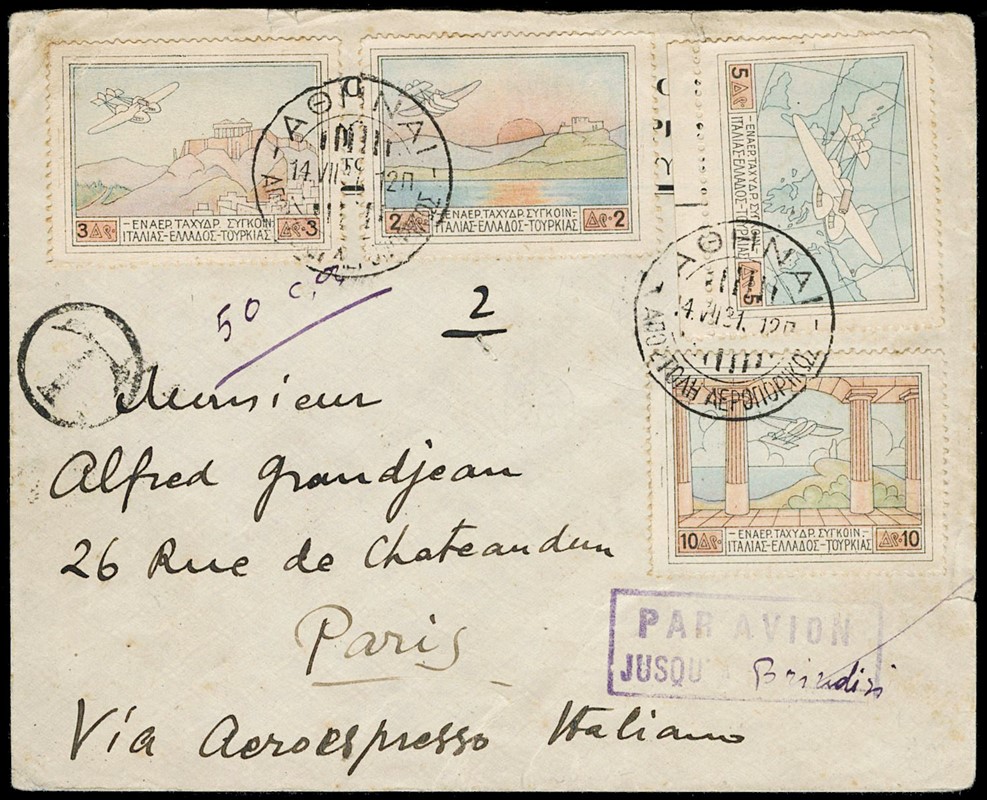 3 Δρ. Δρ. 3
—ΕΝΑΕΡ. ΤΑΧΥΔΡ. ΣΥΓΚΟΙΝ.—
ΙΤΑΛΙΑΣ–ΕΛΛΑΔΟΣ–ΤΟΥΡΚΙΑΣ
2 Δρ. 2
ΕΝΑΕΡ. ΤΑΧΥΔΡ. ΣΥΓΚΟΙΝ.—
ΙΤΑΛΙΑΣ–ΕΛΛΑΔΟΣ–ΤΟΥΡΚΙΑΣ
5 Δρ. Δρ. 5
—ΕΝΑΕΡ. ΤΑΧΥΔΡ. ΣΥΓΚΟΙΝ.
ΙΤΑΛΙΑΣ–ΕΛΛΑΔΟΣ–ΤΟΥΡΚΙΑΣ
ΑΘΗΝΑΙ
14.VII 12Π
ΑΘΗΝΑΙ
14.VII 31. 12Π
ΑΠΟΣΤΟΛΗ ΑΕΡΟΠΟΡΙΚΩΣ
10 Δρ. Δρ. 10
—ΕΝΑΕΡ. ΤΑΧΥΔΡ. ΣΥΓΚΟΙΝ.—
ΙΤΑΛΙΑΣ–ΕΛΛΑΔΟΣ–ΤΟΥΡΚΙΑΣ
50 c,
2
T
Monsieur
Alfred Grandjean
26 Rue de Chateaudun
Paris
PAR AVION
JUSQU' Brindisi
Via Aeroespresso Italiano